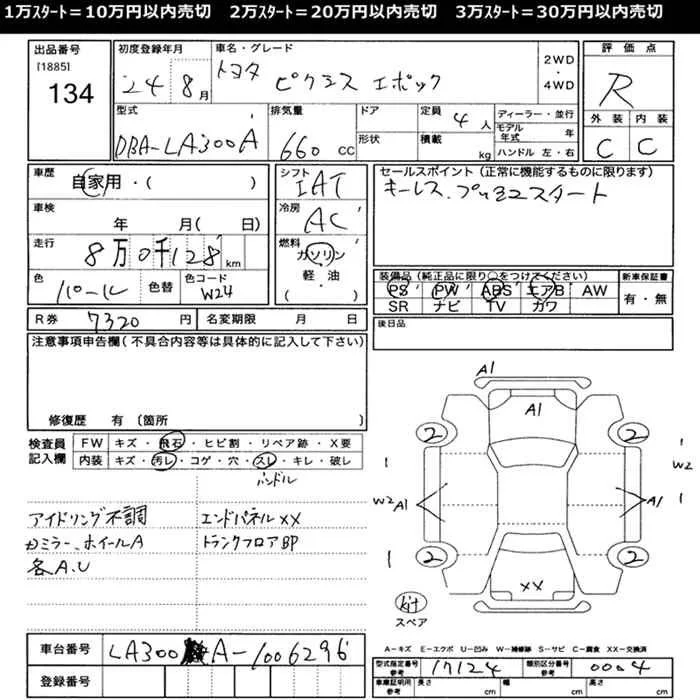 1万スタート=10万円以内売切　2万スタート=20万円以内売切　3万スタート=30万円以内売切
出品番号
[1885]
134
初度登録年月
24 8月
車名・グレード
トヨタ ピクシス エポック
2WD
・
4WD
評価点
R
外装 内装
C C
型式
DBA-LA300A
排気量
660 cc
ドア
形状
定員
4人
積載
kg
ディーラー・並行
モデル年式 年
ハンドル 左・右
車歴
自家用・( )
車検
年 月( 日)
走行
8万0千128 km
色
パール
色替
色コード
W24
シフト
IAT
冷房
AC
燃料
ガソリン
軽・油
( )
セールスポイント(正常に機能するものに限ります)
キーレス、プッシュスタート
装備品(純正品に限り○をつけてください)
PS PW ABS エアB AW
SR ナビ TV カワ
新車保証書
有・無
R券 7320 円
名変期限 月 日
後日品
注意事項申告欄(不具合内容等は具体的に記入して下さい)
修復歴 有 〔箇所 〕
検査員記入欄
FW キズ・飛石・ヒビ割・リペア跡・X要
内装 キズ・汚レ・コゲ・穴・スレ・キレ・破レ
ハンドル
アイドリング不調
ミラー、ホイールA
各A.U
エンドパネルXX
トランクフロアBP
A1
A1
2 2
W2 A1
A1 W2
2 2
XX
スペア
A-キズ E-エクボ U-凹み W-補修跡 S-サビ C-腐食 XX-交換済
車台番号
LA300A-1006296
登録番号
型式指定番号 参考 17124
類別区分番号 参考 0004
車庫証明用 参考 長さ cm 幅 cm 高さ cm